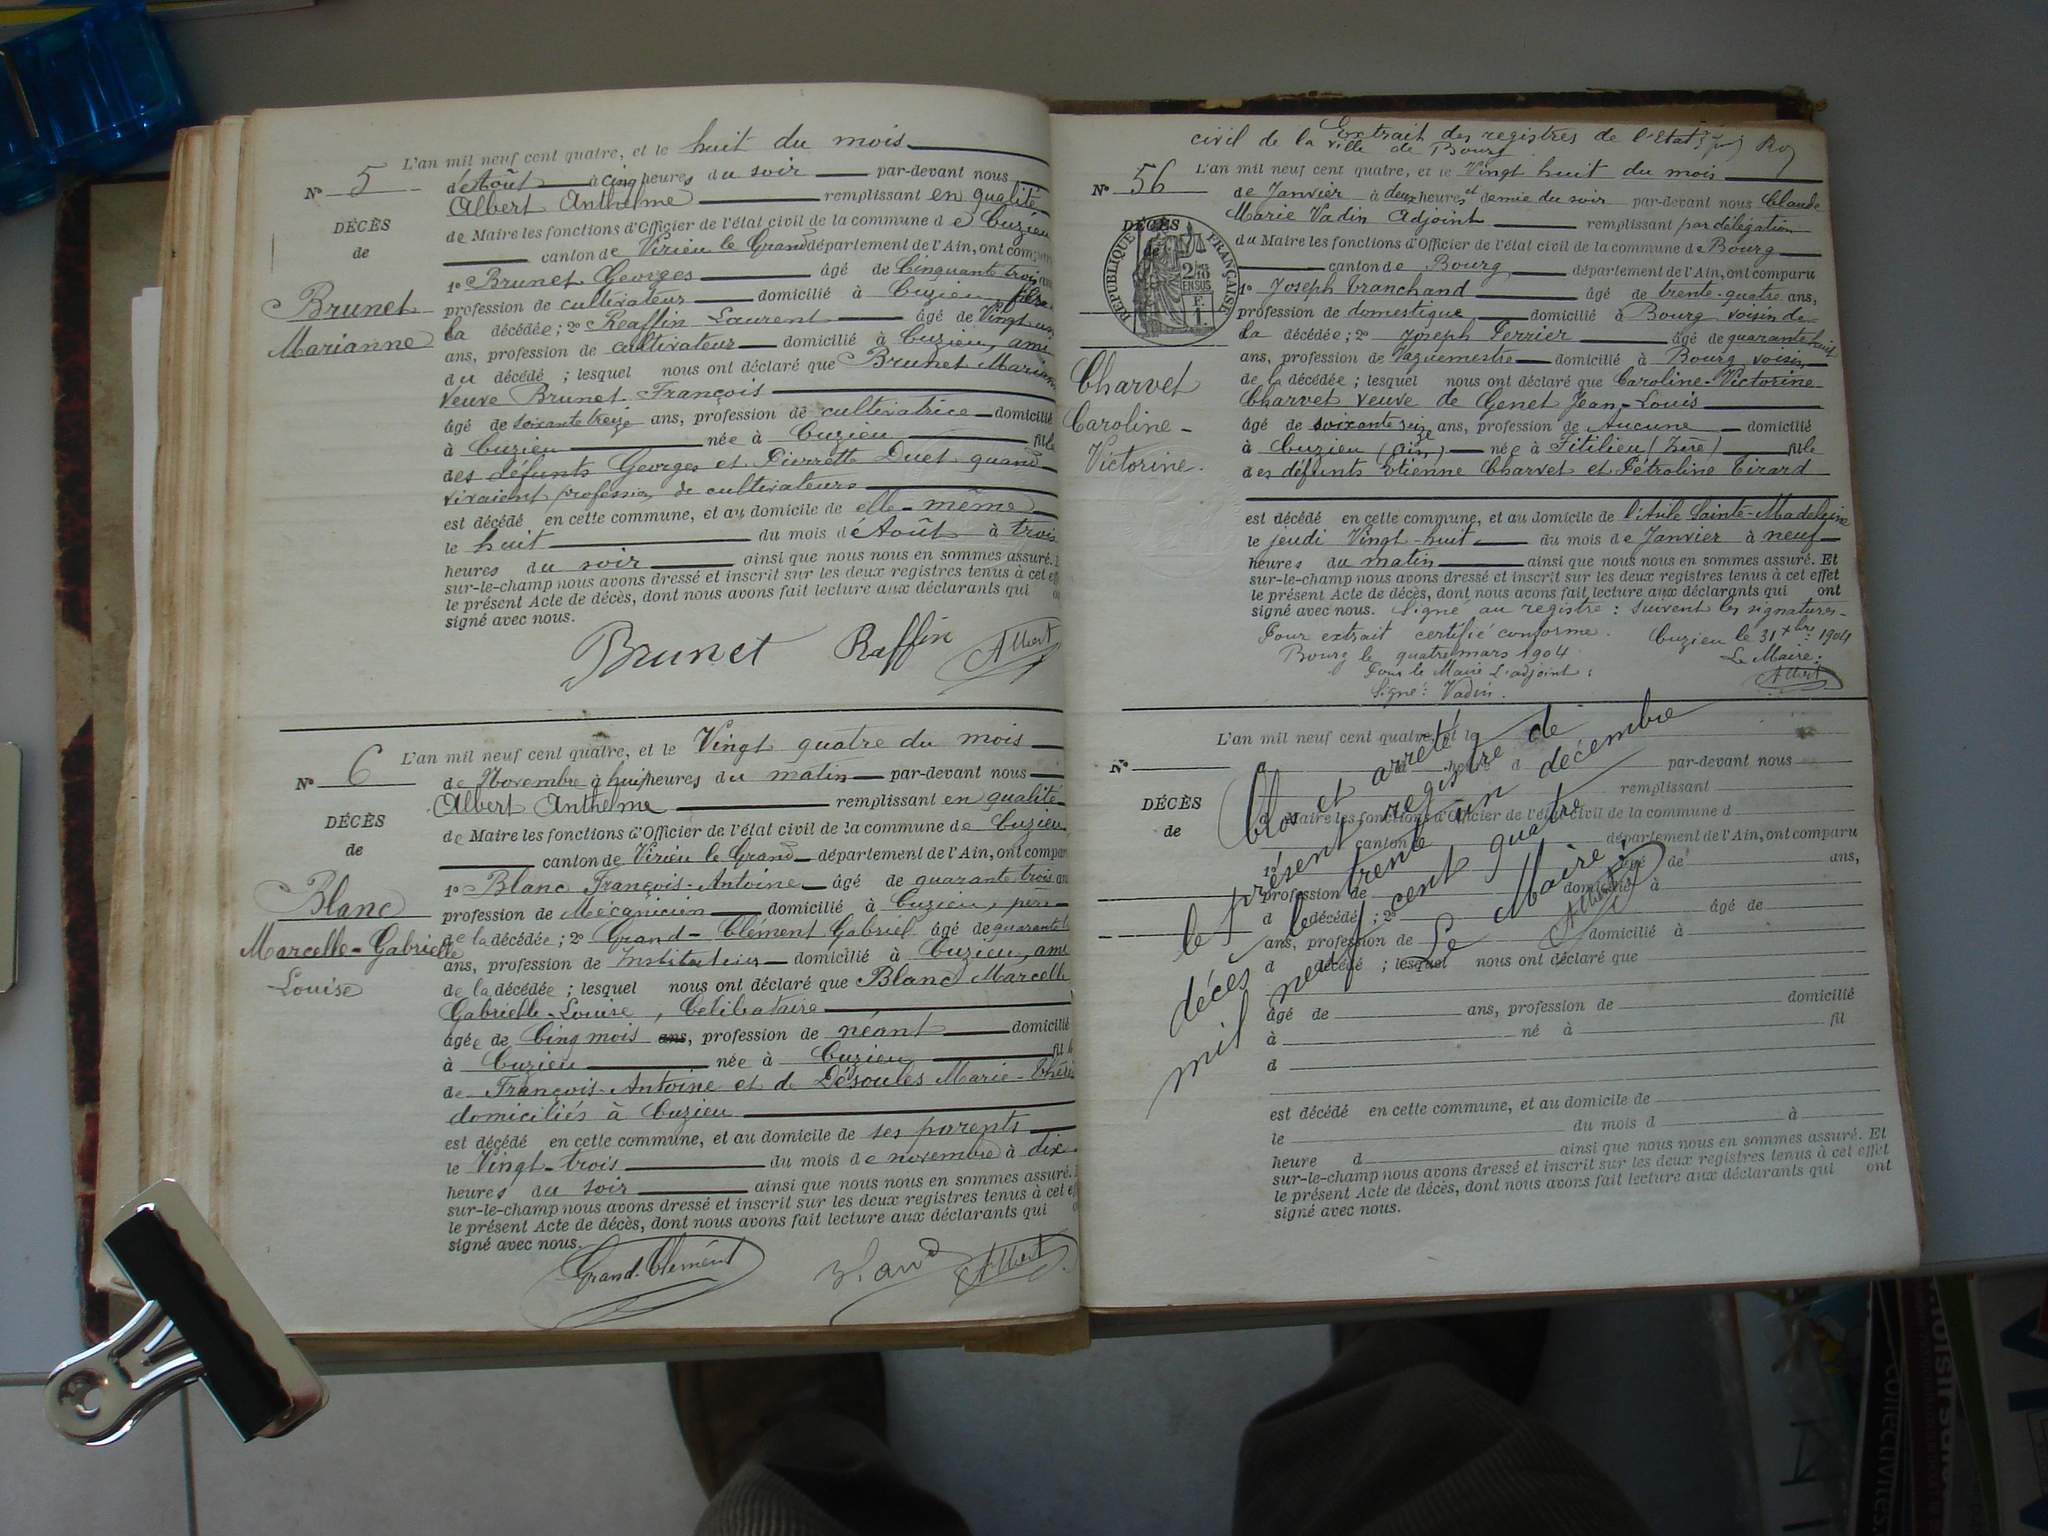 L'an mil neuf cent quatre, et le huit du mois
N° 5 d'Août à cinq heures du soir par-devant nous
Albert Anthelme remplissant en qualité
DÉCÈS
de Maire les fonctions d'Officier de l'état civil de la commune de Cuzieu
de
canton de Virieu le Grand département de l'Ain, ont comparu
1° Brunet Georges âgé de Cinquante trois ans
Brunet
Marianne
profession de cultivateur domicilié à Cuzieu, frère
la décédée ; 2° Raffin Laurent âgé de Vingt un
ans, profession de cultivateur domicilié à Cuzieu, ami
du décédé ; lesquel nous ont déclaré que Brunet Marianne
veuve Brunet François
âgé de soixante treize ans, profession de cultivatrice domicilié
à Cuzieu née à Cuzieu fille
des défunts Georges et Pierrette Duet quand
vivaient profession de cultivateurs
est décédé en cette commune, et au domicile de elle-même
le huit du mois d'Août à trois
heures du soir ainsi que nous nous en sommes assuré. E
sur-le-champ nous avons dressé et inscrit sur les deux registres tenus à cet ef
le présent Acte de décès, dont nous avons fait lecture aux déclarants qui o
signé avec nous.
Brunet Raffin Albert
L'an mil neuf cent quatre, et le Vingt quatre du mois
N° 6 de Novembre à huit heures du matin par-devant nous
Albert Anthelme remplissant en qualité
DÉCÈS
de Maire les fonctions d'Officier de l'état civil de la commune de Cuzieu
de
canton de Virieu le Grand département de l'Ain, ont comparu
Blanc
Marcelle-Gabrielle
Louise
1° Blanc François-Antoine âgé de quarante trois ans
profession de Mécanicien domicilié à Cuzieu, père
de la décédée ; 2° Grand-Clément Gabriel âgé de quarante
ans, profession de Instituteur domicilié à Cuzieu, ami
de la décédée ; lesquel nous ont déclaré que Blanc Marcelle
Gabrielle-Louise, Célibataire
âgée de Cinq mois ans, profession de néant domicilié
à Cuzieu née à Cuzieu fille
de François-Antoine et de Désoules Marie-Thérèse
domiciliés à Cuzieu
est décédé en cette commune, et au domicile de ses parents
le Vingt-trois du mois de novembre à dix
heures du soir ainsi que nous nous en sommes assuré. E
sur-le-champ nous avons dressé et inscrit sur les deux registres tenus à cet ef
le présent Acte de décès, dont nous avons fait lecture aux déclarants qui o
signé avec nous.
Grand-Clément Blanc Albert
Extrait des registres de l'Etat
civil de la ville de Bourg
L'an mil neuf cent quatre, et le Vingt huit du mois
N° 56 de Janvier à deux heures et demie du soir par-devant nous Claude
Marie Vadin Adjoint remplissant par délégation
DÉCÈS
de
RÉPUBLIQUE FRANÇAISE
2/10 EN SUS
F. 1
du Maire les fonctions d'Officier de l'état civil de la commune de Bourg
canton de Bourg département de l'Ain, ont comparu
1° Joseph Tranchand âgé de trente-quatre ans,
profession de domestique domicilié à Bourg voisin de
la décédée ; 2° Joseph Perrier âgé de quarante huit
ans, profession de Vaguemestre domicilié à Bourg, voisin
Charvet
Caroline-
Victorine.
de la décédée ; lesquel nous ont déclaré que Caroline-Victorine
Charvet veuve de Genet Jean-Louis
âgé de soixante seize ans, profession de Aucune domicilié
à Cuzieu (Ain) née à Fitilieu (Isère) fille
des défunts Etienne Charvet et Pétroline Tirard
est décédé en cette commune, et au domicile de l'Asile Sainte-Madeleine
le jeudi Vingt-huit du mois de Janvier à neuf
heures du matin ainsi que nous nous en sommes assuré. Et
sur-le-champ nous avons dressé et inscrit sur les deux registres tenus à cet effet
le présent Acte de décès, dont nous avons fait lecture aux déclarants qui ont
signé avec nous. Signé au registre : suivent les signatures.
Pour extrait certifié conforme. Cuzieu le 31 Xbre 1904
Bourg le quatre mars 1904 Le Maire :
Pour le Maire L'adjoint : Albert
Signé : Vadin.
L'an mil neuf cent quatre, et le
N° à heure d par-devant nous
remplissant
DÉCÈS
d Maire les fonctions d'Officier de l'état civil de la commune d
de
canton d département de l'Ain, ont comparu
1° âgé de ans,
profession de domicilié à
d décédé ; 2° âgé de
ans, profession de domicilié à
d décédé ; lesquel nous ont déclaré que
âgé de ans, profession de domicilié
à né à fil
d
est décédé en cette commune, et au domicile de
le du mois d à
heure d ainsi que nous nous en sommes assuré. Et
sur-le-champ nous avons dressé et inscrit sur les deux registres tenus à cet effet
le présent Acte de décès, dont nous avons fait lecture aux déclarants qui ont
signé avec nous.
Clos et arrêté
le présent registre de
décès le trente un décembre
mil neuf cent quatre
Le Maire :
Albert